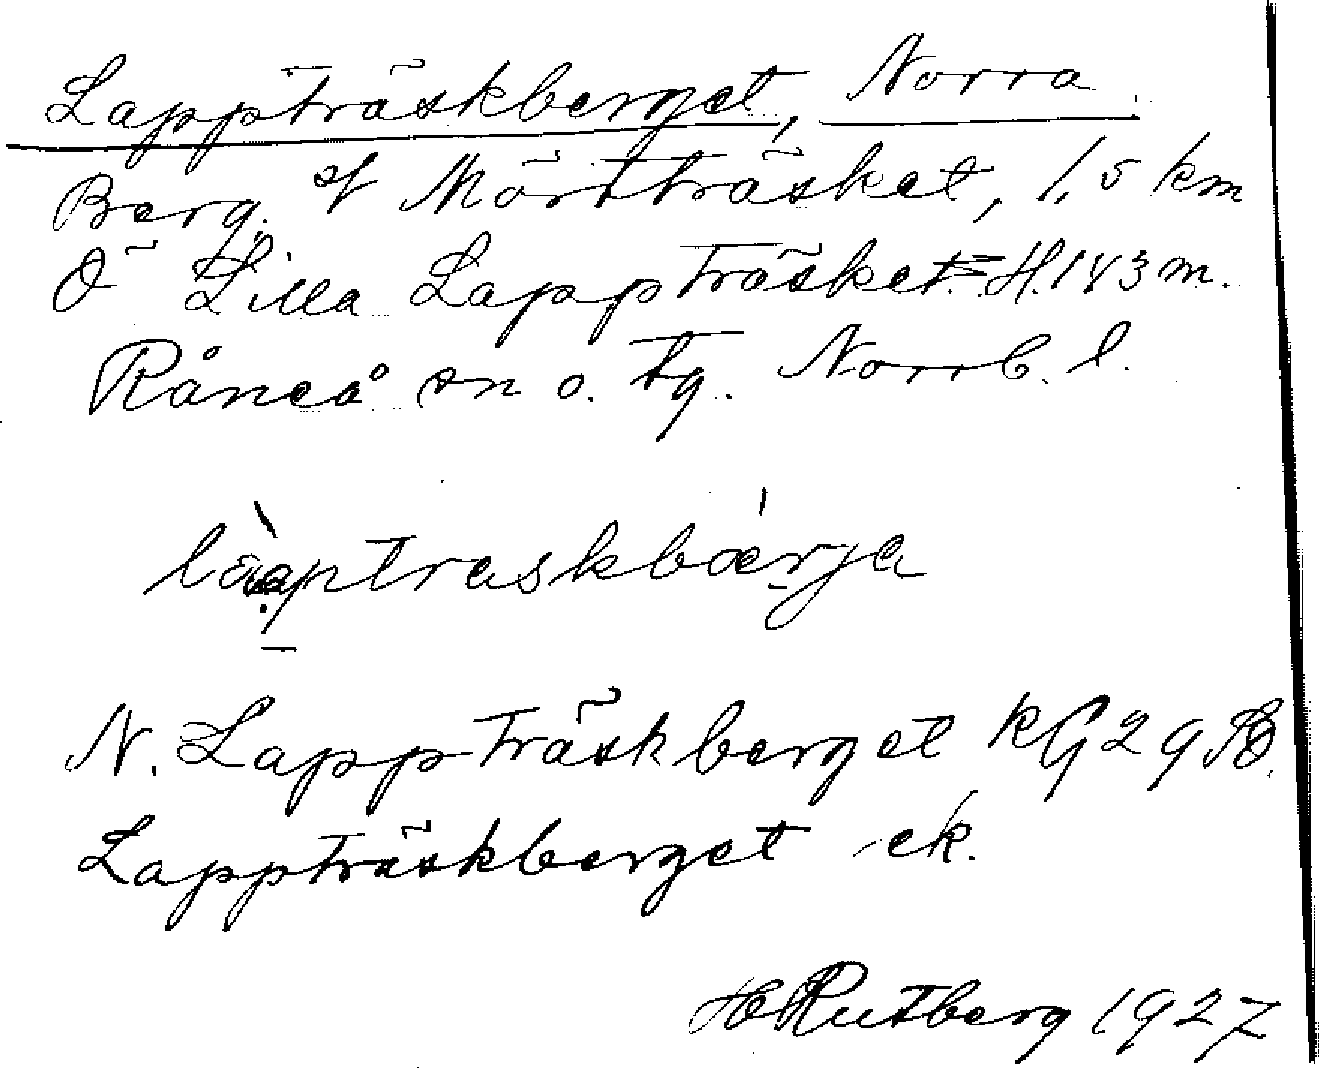 Lappträskberget, Norra
Berg. V Mörtträsket, 1,5 km
Ö Lilla Lappträsket. H. 143 m.
Råneå sn o. tg. Norrb. l.
N. Lappträskberget kG 29 B.
Lappträskberget ek.
H Rutberg 1927